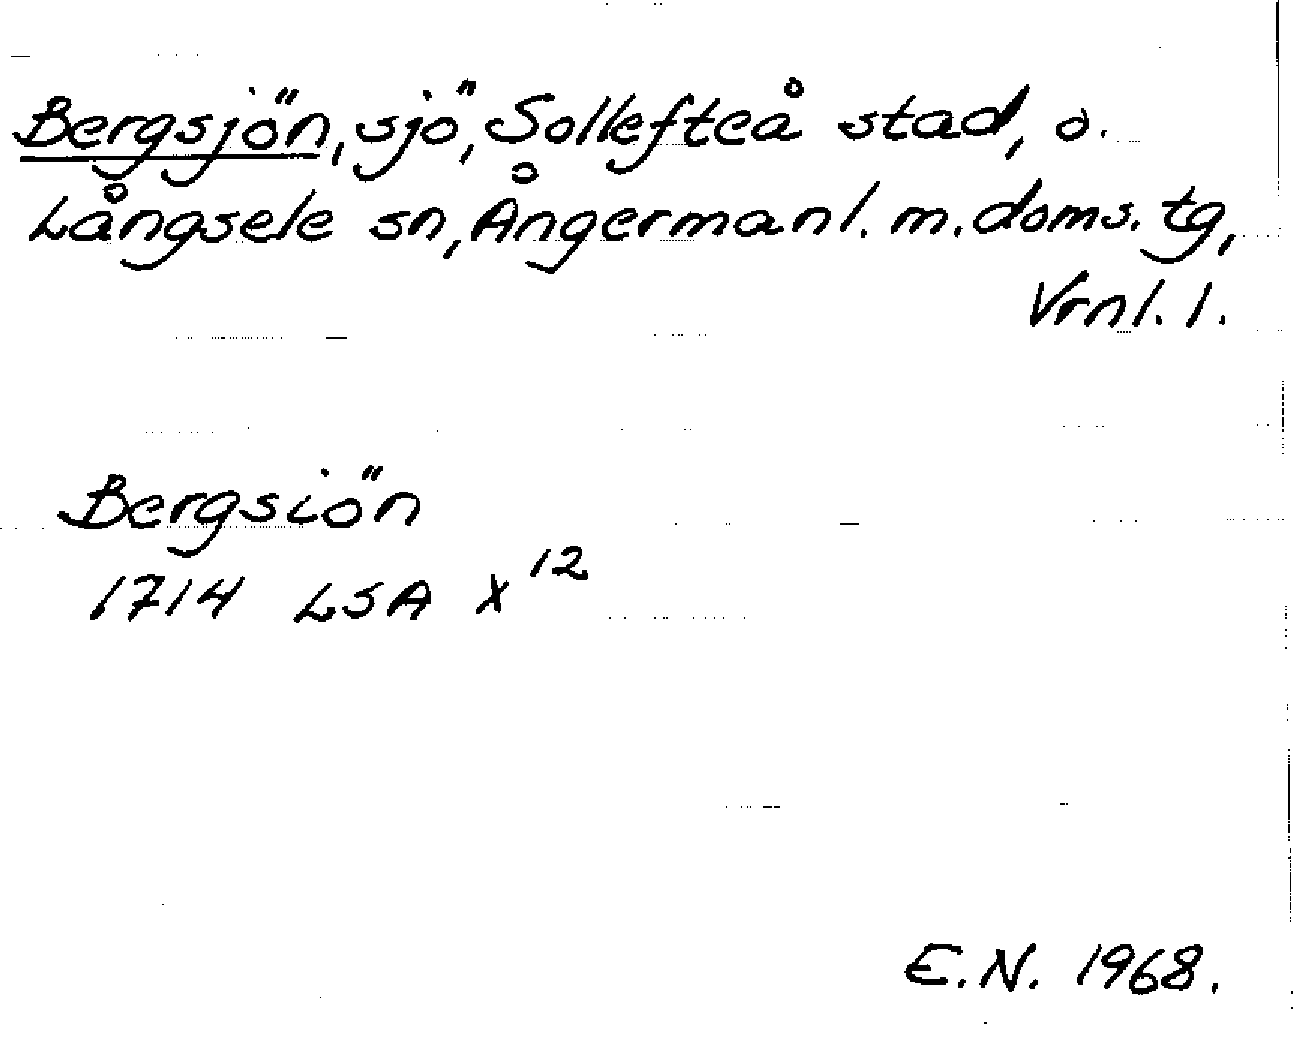 Bergsjön, sjö, Sollefteå stad, o.
Långsele sn, Ångermanl. m. doms. tg,
Vrnl. l.
Bergsiön
1714 LSA X 12
E.N. 1968.